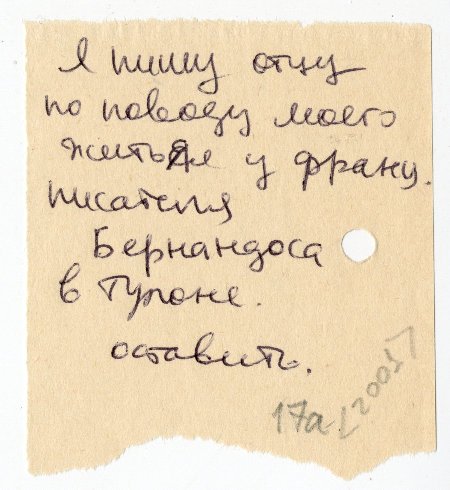 Я пишу отцу
по поводу моего
житья у франц.
писателя
Бернандоса
в Тулоне.
оставить.
17а [2005]